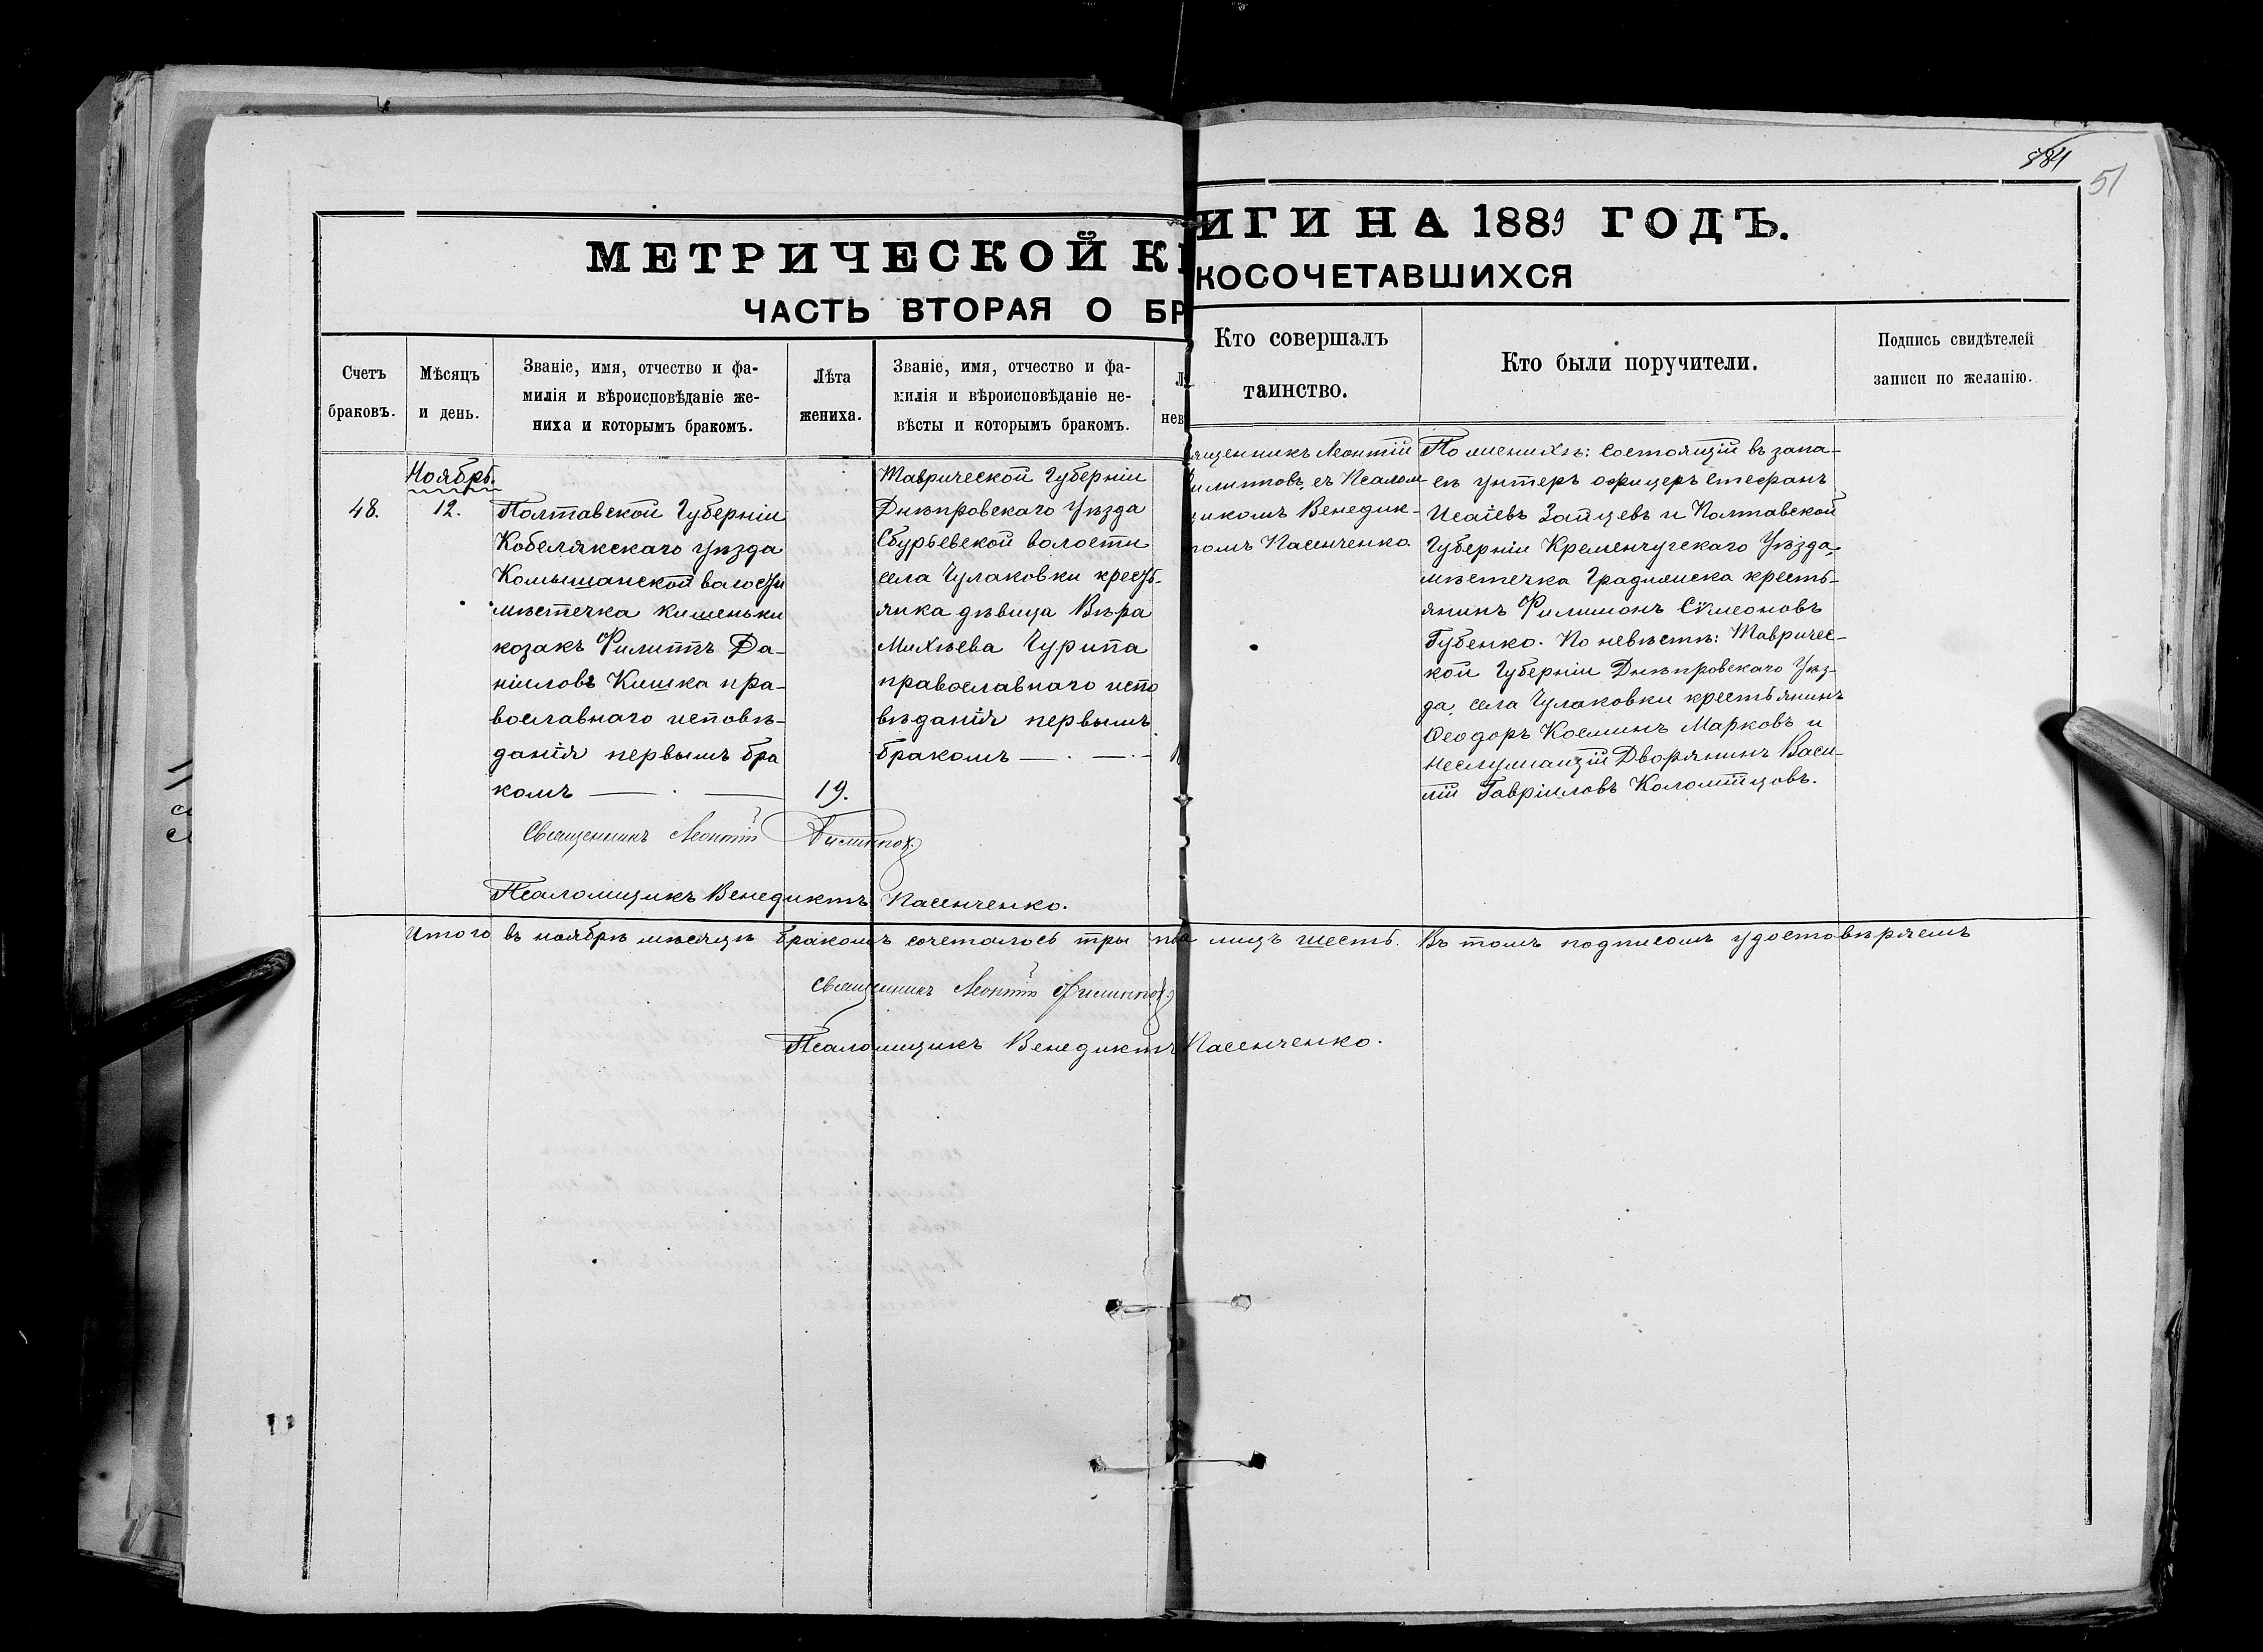 884
51
МЕТРИЧЕСКОЙ КНИГИ НА 1889 ГОДЪ.
ЧАСТЬ ВТОРАЯ О БРАКОСОЧЕТАВШИХСЯ
Счетъ
браковъ.
Мѣсяцъ
и день.
Званіе, имя, отчество и фа-
милія и вѣроисповѣданіе же-
ниха и которымъ бракомъ.
Лѣта
жениха.
Званіе, имя, отчество и фа-
милія и вѣроисповѣданіе не-
вѣсты и которымъ бракомъ.
Л
нев
Кто совершалъ
таинство.
Кто были поручители.
Подпись свидѣтелей
записи по желанію.
48.
Ноябрь.
12.
Полтавской Губерніи
Кобелякскаго уѣзда
Комышанской волости
мѣстечка Кишеньки
козакъ Филиппъ Да-
ніиловъ Кишка пра-
вославнаго исповѣ-
данія первымъ бра
комъ
19.
Таврической Губерніи
Днѣпровскаго Уѣзда
Сбурьевской волости
села Чулаковки кресть-
янка дѣвица Вѣра
Михѣева Чурипа
православнаго испо
вѣданія первымъ
бракомъ
ященникъ Леонтій
илипповъ, съ Псалом-
щикомъ Венедик-
томъ Пасенченко.
По женихѣ: состоящій въ запа-
сѣ унтеръ офицеръ Стефанъ
Исаіевъ Зайцевъ и Полтавской
Губерніи Кременчугскаго Уѣзда,
мѣстечка Градижска кресть-
янинъ Филимонъ Сѵмеоновъ
Губенко. По невѣстѣ: Тавричес-
кой Губерніи Днѣпровскаго Уѣз-
да, села Чулаковки крестьянинъ
Ѳеодоръ Косминъ Марковъ и
неслужащій Дворянинъ Васи-
лій Гавріиловъ Коломійцовъ.
Священникъ Леонтій Филипповъ
Псаломщикъ Венедиктъ Пасенченко.
Итого въ ноябрѣ мѣсяцѣ бракомъ сочеталось три лицъ шесть. Въ томъ подписомъ удостовѣряемъ
Священникъ Леонтій Филипповъ
Псаломщикъ Венедиктъ Пасенченко.